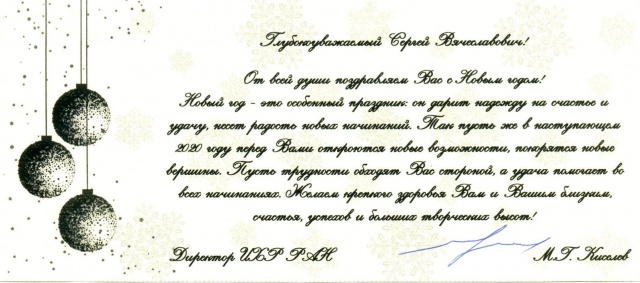 Глубокоуважаемый Сергей Вячеславович!
От всей души поздравляем Вас с Новым годом!
Новый год - это особенный праздник: он дарит надежду на счастье и
удачу, несет радость новых начинаний. Так пусть же в наступающем
2020 году перед Вами откроются новые возможности, покорятся новые
вершины. Пусть трудности обходят Вас стороной, а удача помогает во
всех начинаниях. Желаем крепкого здоровья Вам и Вашим близким,
счастья, успехов и больших творческих высот!
Директор ИХР РАН М.Г. Киселев